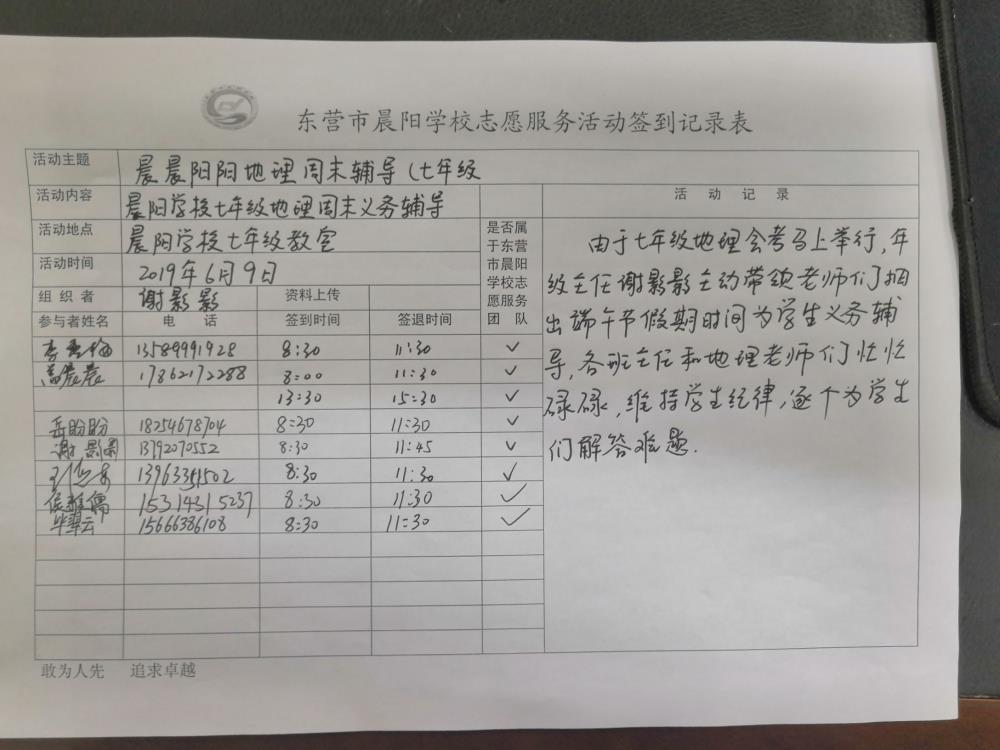 东营市晨阳学校志愿服务活动签到记录表
活动主题 晨晨阳阳地理周末辅导（七年级
活动内容 晨阳学校七年级地理周末义务辅导
活动地点 晨阳学校七年级教室
活动时间 2019年6月9日
组织者 谢影影 资料上传
是否属
于东营
市晨阳
学校志
愿服务
团队
参与者姓名 电话 签到时间 签退时间
13589991928 8:30 11:30 ✓
17862172288 8:00 11:30 ✓
13:30 15:30 ✓
岳盼盼 18254678704 8:30 11:30 ✓
谢影影 1392070552 8:30 11:45 ✓
8:30 11:30 ✓
侯雅儒 15314315237 8:30 11:30 ✓
毕翠云 15666386108 8:30 11:30 ✓
活动记录
由于七年级地理会考马上举行，年
级主任谢影影主动带领老师们抽
出端午节假期时间为学生义务辅
导，各班主任和地理老师们忙忙
碌碌，维持学生纪律，逐个为学生
们解答难题.
敢为人先 追求卓越